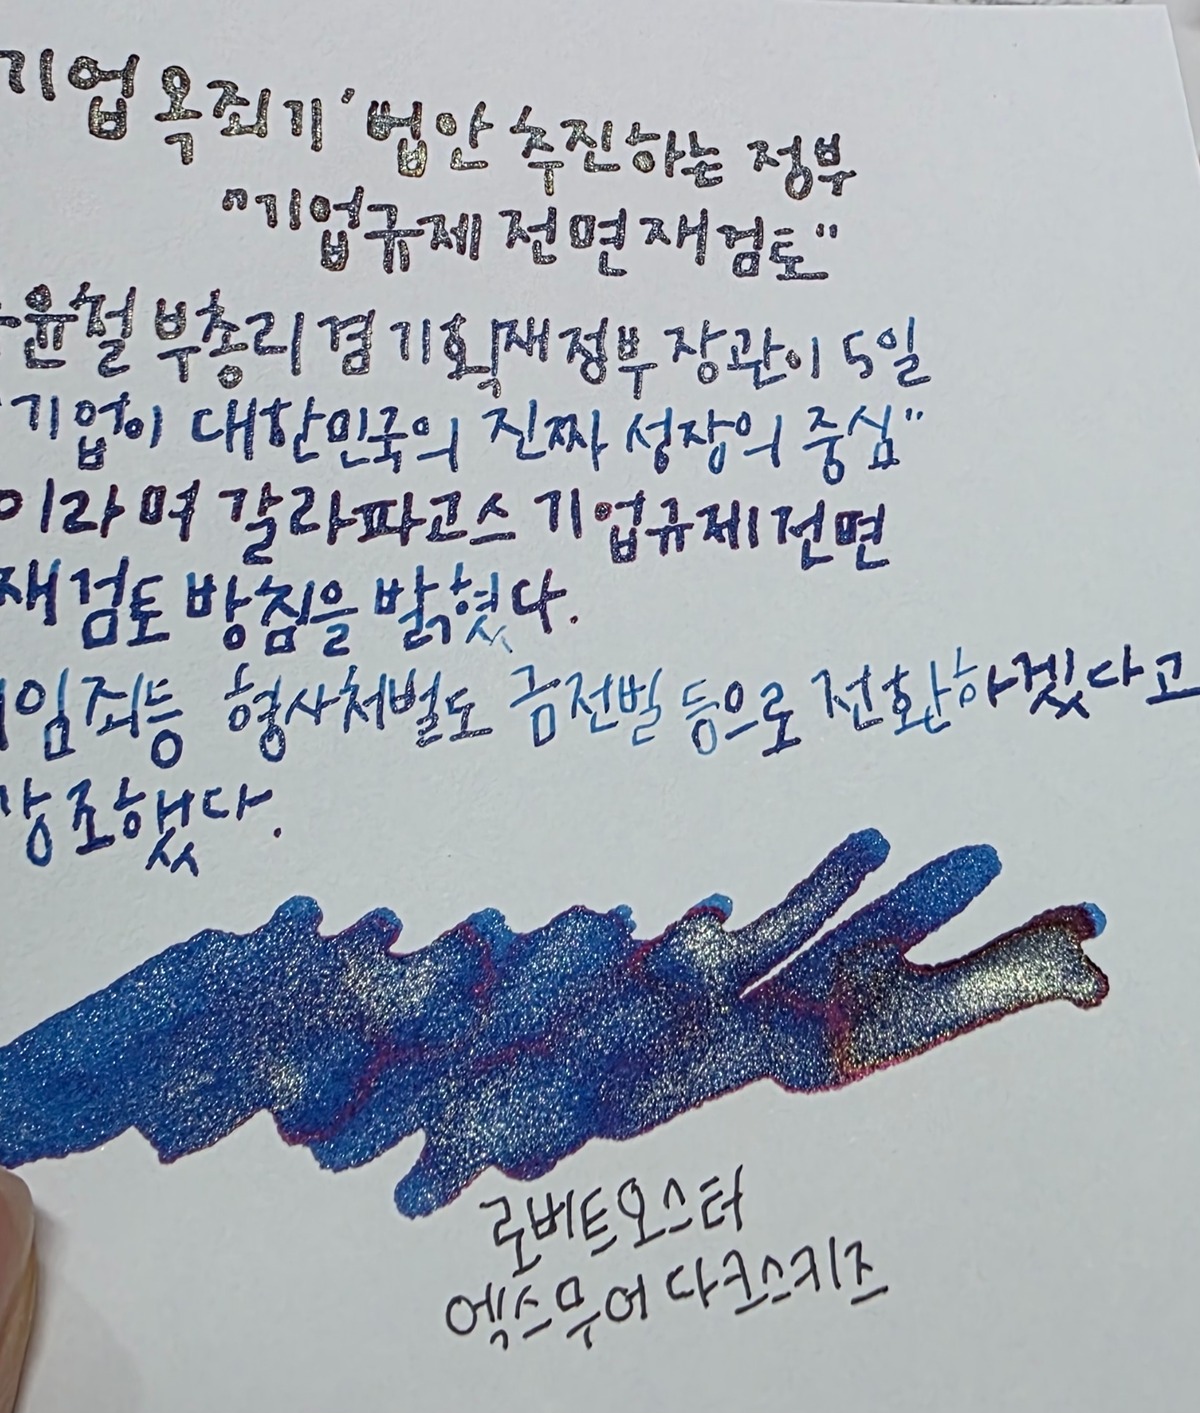 기업 옥죄기' 법안 추진하는 정부
"기업규제 전면 재검토"
윤철 부총리 겸 기획재정부 장관이 5일
기업이 대한민국의 진짜 성장의 중심"
이라며 갈라파고스 기업규제 전면
재검토 방침을 밝혔다.
임죄등 형사처벌도 금전벌 등으로 전환하겠다고
강조했다.
로버트오스터
엑스무어 다크스키즈